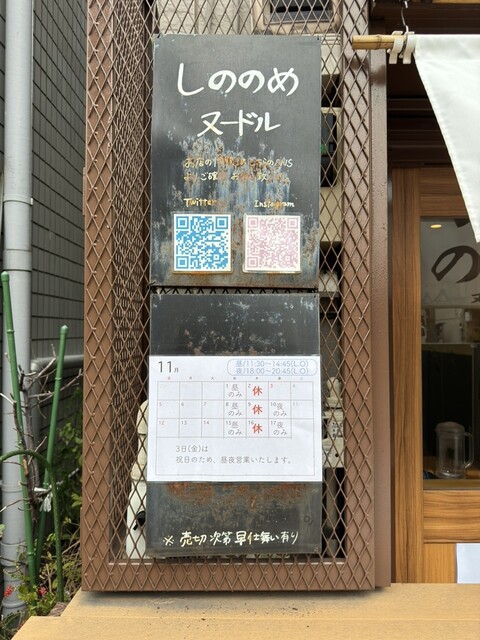 しののめ
ヌードル
お店の
Twitter
Instagram
11月
昼/11:30〜14:45(L.O)
夜/18:00〜20:45(L.O)
1 昼のみ 2 休 3
5 6 7 8 昼のみ 9 休 10 夜のみ 11
12 13 14 15 昼のみ 16 休 17 夜のみ
3日(金)は
祝日のため、昼夜営業いたします。
※ 売切次第早仕舞い有り
の